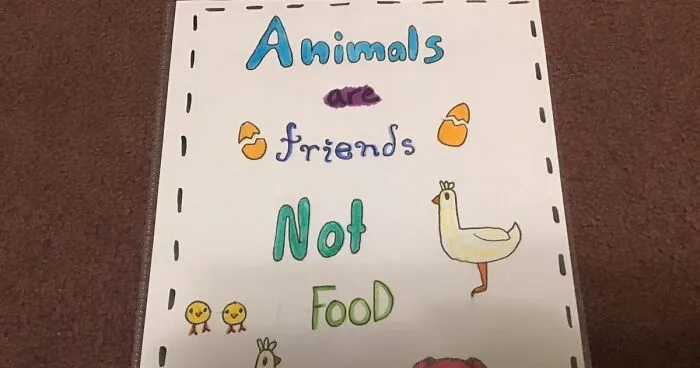 Animals
are
friends
Not
FooD